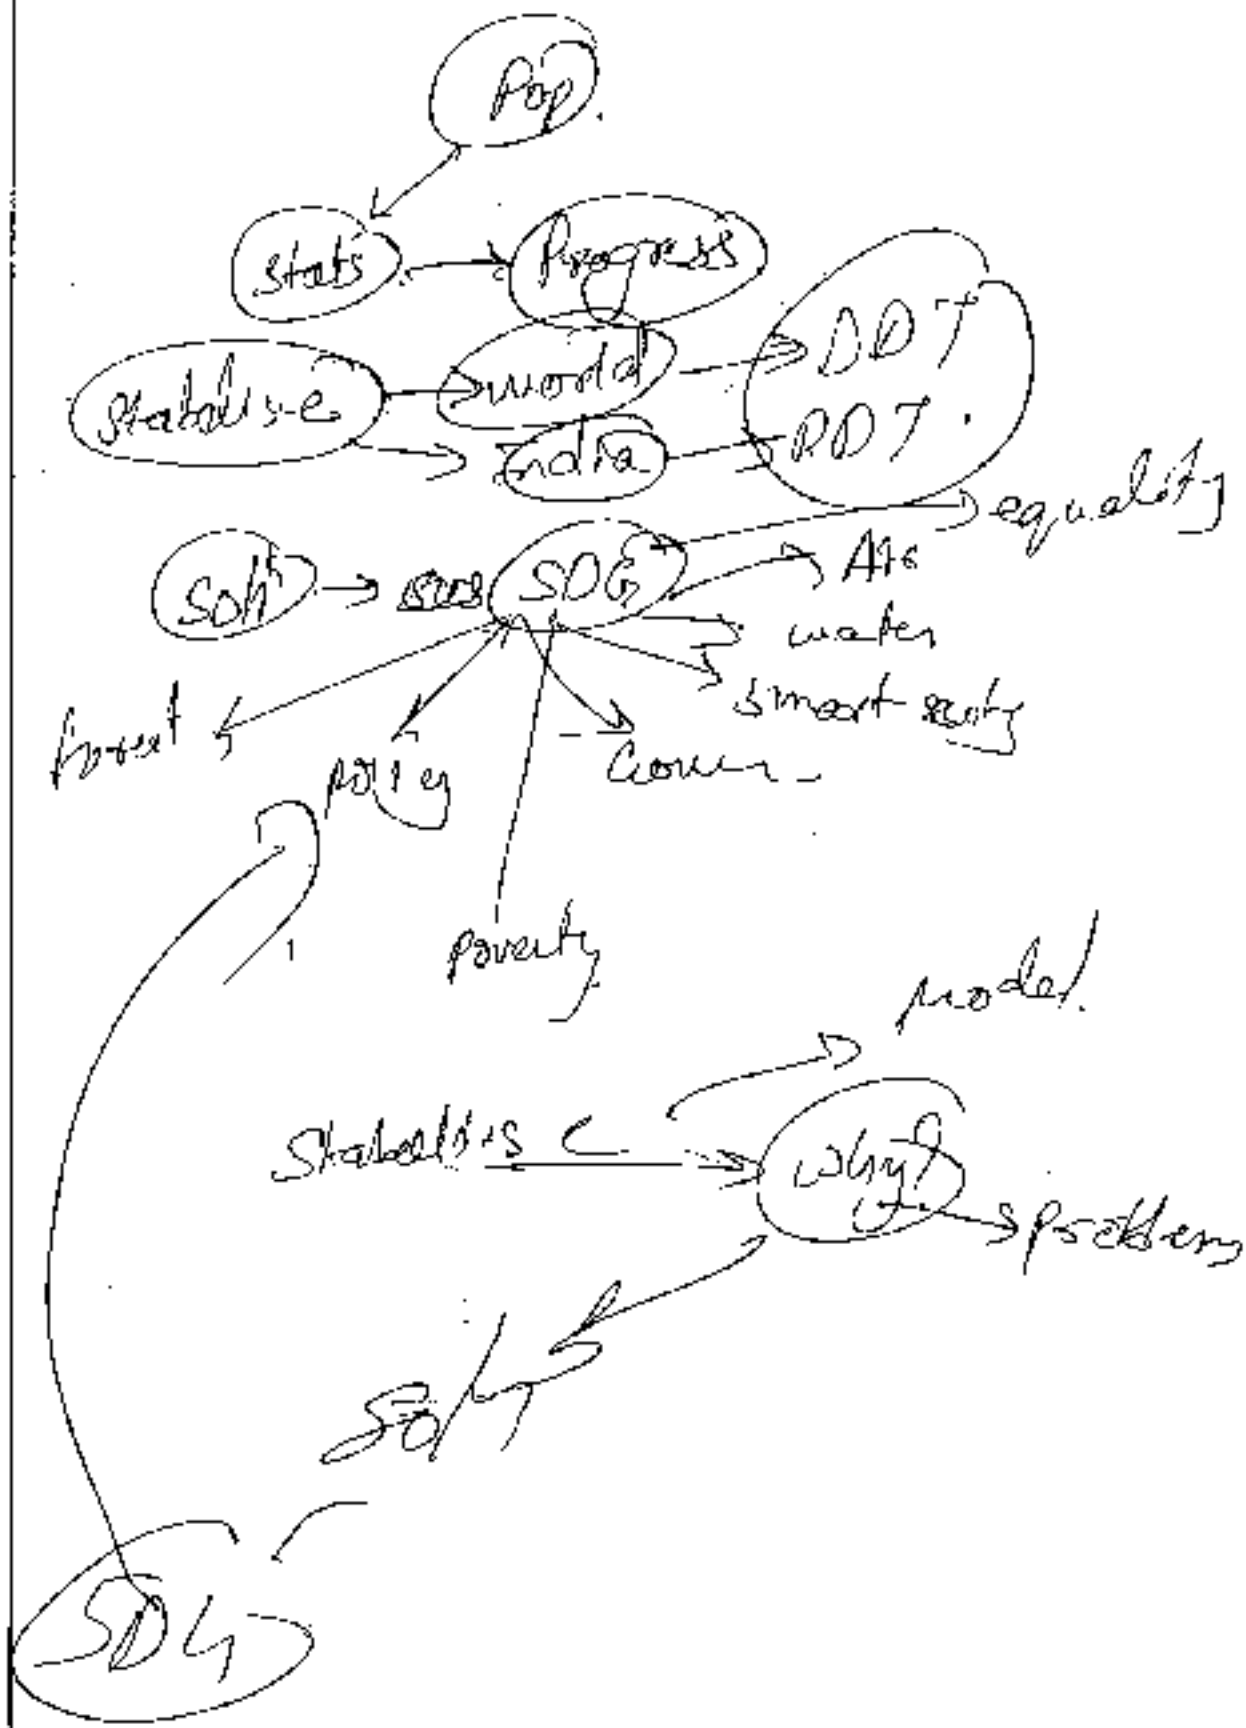 Pop.
Stats Progress
DDT
Stabalise World
India RDT.
equality
Soln SDG
water
Smart
Forest
policy Govern
Poverty
model
Stabalise Why?
Problems
Soln
SDG